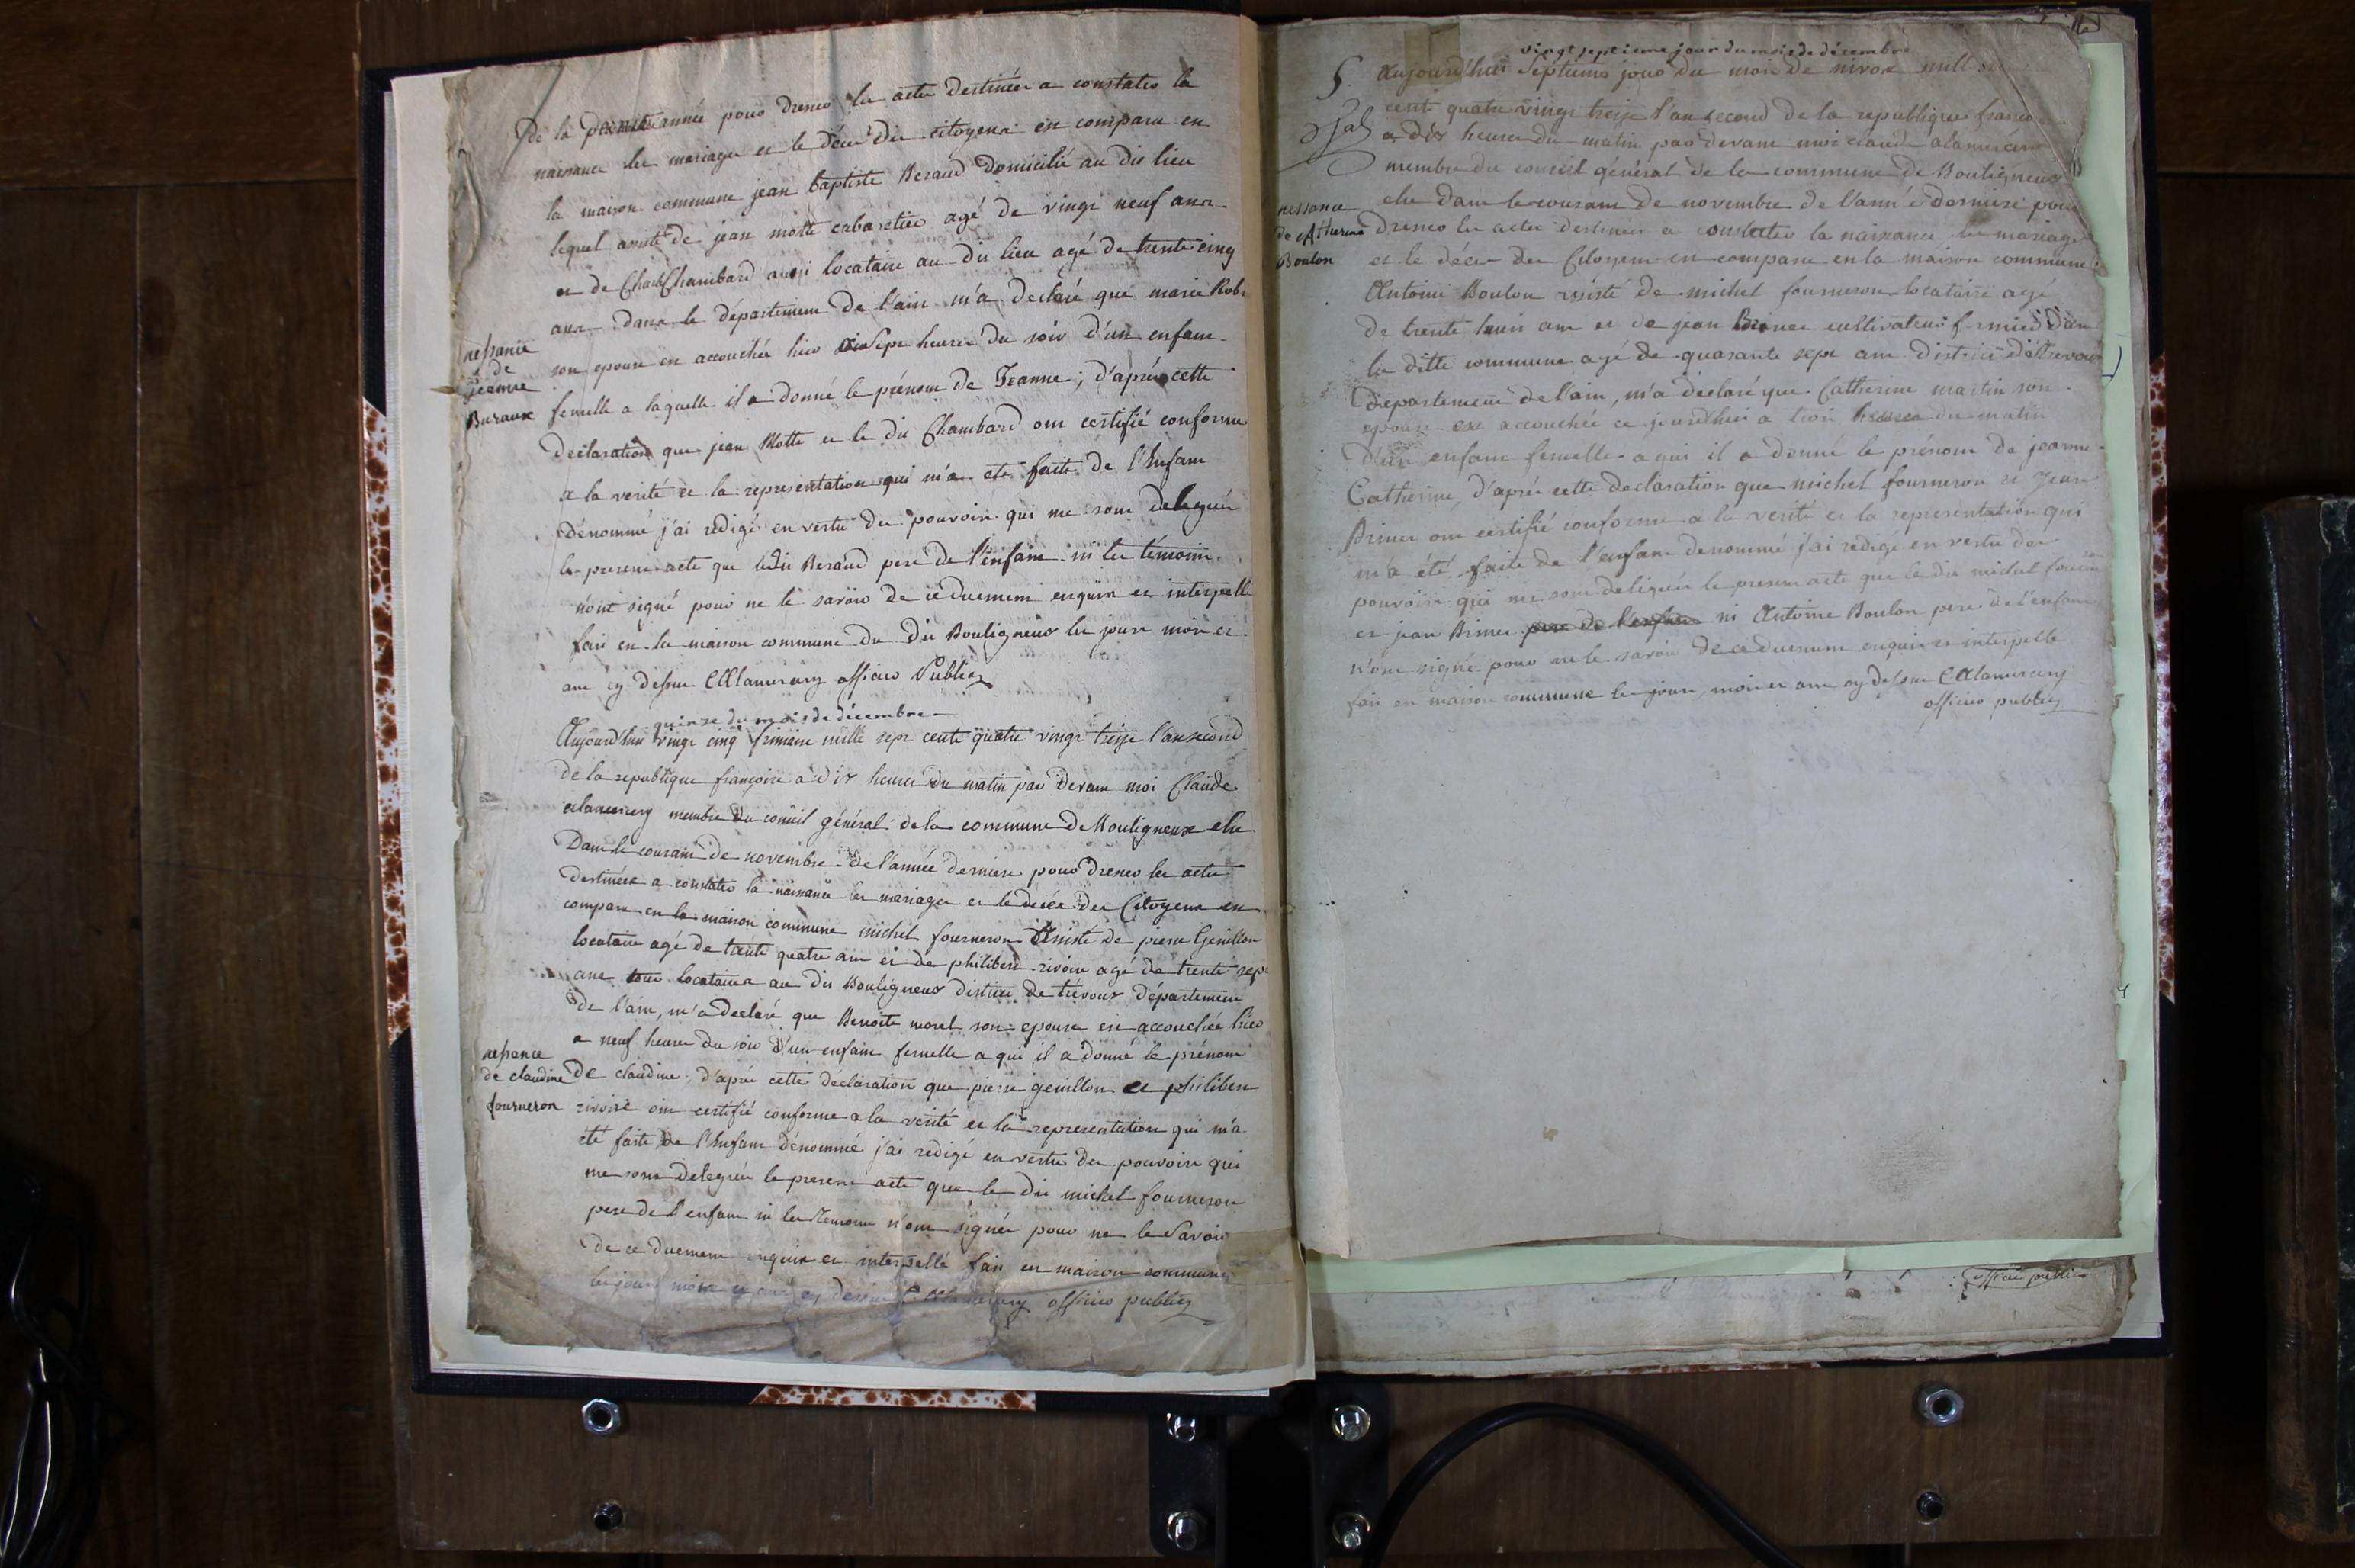 de la presente année pour dresser les actes destinées a constater la
naissance les mariages et le décès des citoyens est comparu en
la maison commune jean baptiste Beraud domicilié au dit lieu
lequel assisté de jean motte cabaretier agé de vingt neuf ans
et de Chambard aussi locataire au dit lieu agé de trente cinq
ans dans le département de l'ain m'a declaré que marie Rob
nessance
de
jeanne
Buraux
son epouse est accouchée hier a sept heures du soir d'un enfant
femelle a laquelle il a donné le prénom de Jeanne ; d'après cette
déclaration que jean Motte et le dit Chambard ont certifié conforme
a la verité et la representation qui m'a eté faite de l'Enfant
dénommé j'ai redigé en vertu des pouvoirs qui me sont delegués
le present acte que ledit Beraud pere de l'enfant ni les témoins
n'ont signé pour ne le savoir de ce duement enquis et interpellé
fait en la maison commune du dit Bouligneux les jours mois et
ans cy dessus CAlamercery officier Public
quinze du mois de décembre
Aujourd'hui vingt cinq frimaire mille sept cents quatre vingt treize l'an second
de la republique françoise a dix heures du matin par devant moi Claude
alamercery membre du conseil général de la commune de Mouligneux elu
Dans le courant de novembre de l'année derniere pour dresser les actes
destinées a constater la naissance les mariages et le décès des Citoyens est
comparu en la maison commune michel fourneron Assisté de pierre Genillon
locataire agé de trente quatre ans et de philibert rivoire agé de trente sept
ans tous locataires au dit Bouligneux district de trevoux département
de l'ain, m'a declaré que Benoite morel son epouse est accouchée hier
a neuf heures du soir d'un enfant femelle a qui il a donné le prénom
nessance
de claudine
fourneron
de claudine, d'après cette déclaration que pierre genillon et philibert
rivoire ont certifié conforme a la verité et la representation qui m'a
été faite de l'Enfant dénommé j'ai redigé en vertu des pouvoirs qui
me sont delegués le present acte que le dit michel fourneron
pere de l'enfant ni les temoins n'ont signés pour ne le Savoir
de ce duement enquis et interpellé fait en maison commune
les jours mois et ans cy dessus officier public
5.
vingt septieme jour du mois de décembre
Aujourd'hui Septieme jour du mois de nivose mill
cent quatre vingt treize l'an second de la republique
a dix heures du matin par devant moi claude alamercery
membre du conseil général de la commune de Bouligneux
nessance
de cAtherine
Boulon
elu dans le courant de novembre de l'année derniere pour
dresser les actes destinées a constater la naissance les mariages
et le décès des Citoyens est comparu en la maison commune
Antoine Boulon assisté de michel fourneron locataire agé
de trente huit ans et de jean Brimer cultivateur fermier dans
la ditte commune agé de quarante sept ans district de trevoux
departement de l'ain, m'a déclaré que Catherine martin son
epouse est accouchée ce jourd'hui a trois heures du matin
d'un enfant femelle a qui il a donné le prénom de jeanne
Catherine, d'après cette declaration que michel fourneron et Jean
Brimer ont certifié conforme a la verité et la representation qui
m'a été faite de l'enfant denommé j'ai redigé en vertu des
pouvoirs qui me sont delegués le present acte que le dit michel
et jean Brimer pere de l'enfant ni Antoine Boulon pere de l'enfant
n'ont signé pour ne le savoir de ce duement enquis et interpellé
fait en maison commune les jours, mois et ans cy dessus CAlamercery
officier public
officier public